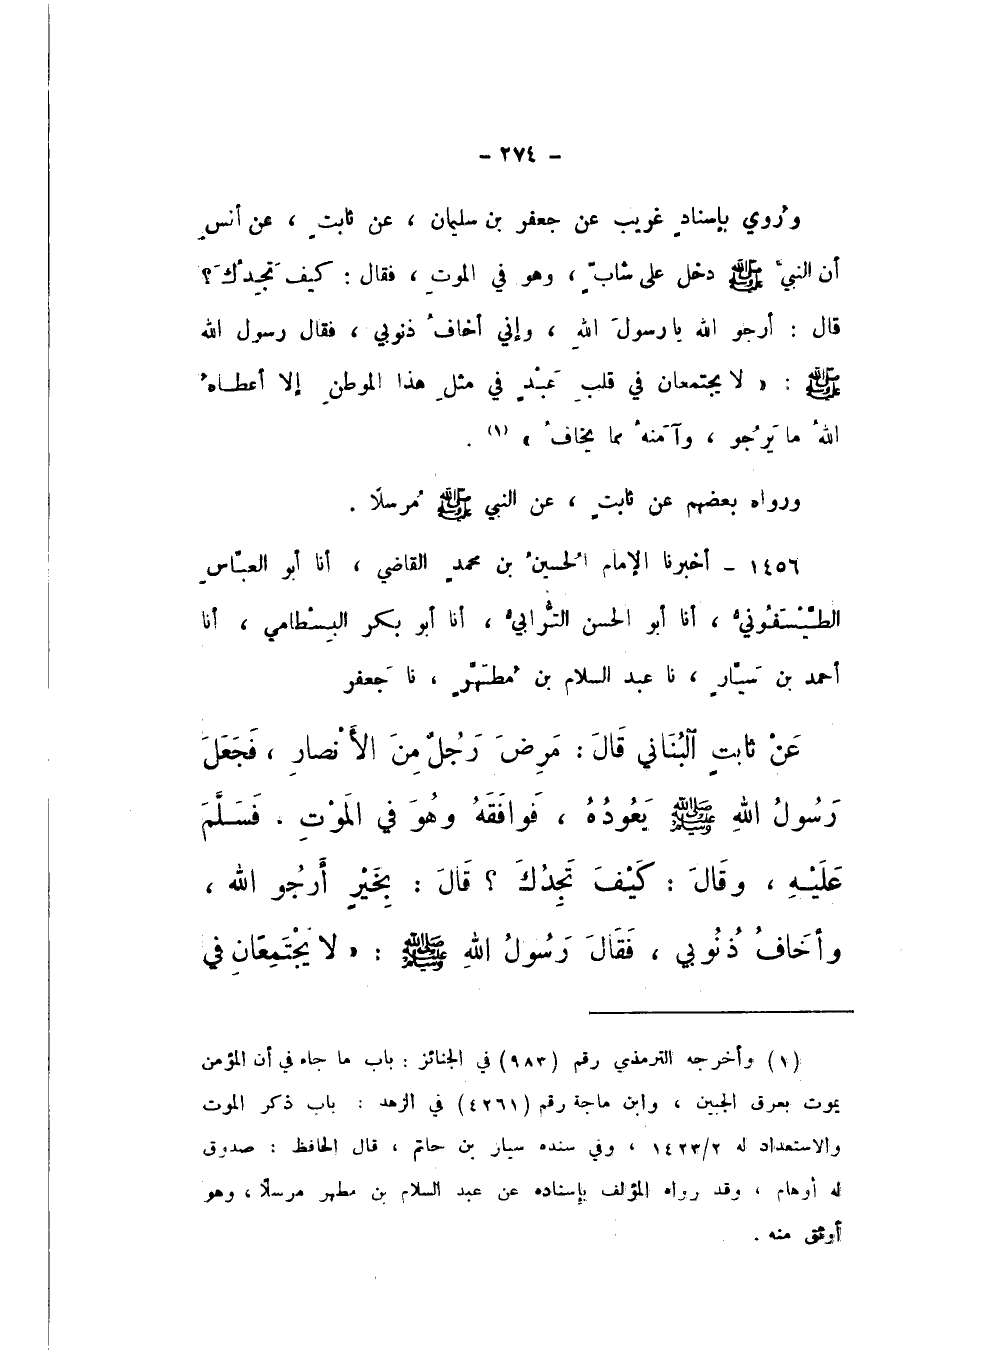 - ٢٧٤ -
ورُوي بإسنادٍ غريب عن جعفر بن سليمان ، عن ثابتٍ ، عن أنسٍ
أن النبيَّ ﷺ دخل على شابٍّ ، وهو في الموتِ ، فقال : كيف تَجِدُكَ ؟
قال : أرجو الله يا رسولَ اللهِ ، وإني أخافُ ذنوبي ، فقال رسول الله
ﷺ : « لا يجتمعان في قلبِ عَبْدٍ في مثلِ هذا الموطنِ إلا أعطـاهُ
اللهُ ما يَرْجُو ، وآمَنهُ مما يخافُ » (١) .
ورواه بعضهم عن ثابتٍ ، عن النبي ﷺ مُرسلاً .
١٤٥٦ - أخبرنا الإمام الحسينُ بن محمدٍ القاضي ، أنا أبو العبّاسِ
الطَّيْسَفُونيُّ ، أنا أبو الحسن التُّرابيُّ ، أنا أبو بكر البِسْطامي ، أنا
أحمد بن سَيّارٍ ، نا عبد السلام بن مُطَهَّرٍ ، نا جَعفر
عَنْ ثابتٍ ٱلْبُنَاني قَالَ : مَرِضَ رَجُلٌ مِنَ الأَنْصارِ ، فَجَعَلَ
رَسُولُ اللهِ ﷺ يَعُودُهُ ، فَوافَقَهُ وهُوَ في المَوْتِ . فَسَـلَّمَ
عَلَيْـهِ ، وقَالَ : كَيْفَ تَجِدُكَ ؟ قَالَ : بِخَيْرٍ أَرجُو الله ،
وأخَافُ ذُنُوبي ، فَقَالَ رَسُولُ اللهِ ﷺ : « لا يَجْتَمِعَانِ في
(١) وأخرجه الترمذي رقم (٩٨٣) في الجنائز : باب ما جاء في أن المؤمن
يموت بعرق الجبين ، وابن ماجة رقم (٤٢٦١) في الزهد : باب ذكر الموت
والاستعداد له ١٤٢٣/٢ ، وفي سنده سيار بن حاتم ، قال الحافظ : صدوق
له أوهام ، وقد رواه المؤلف بإسناده عن عبد السلام بن مطهر مرسلاً ، وهو
أوثق منه .